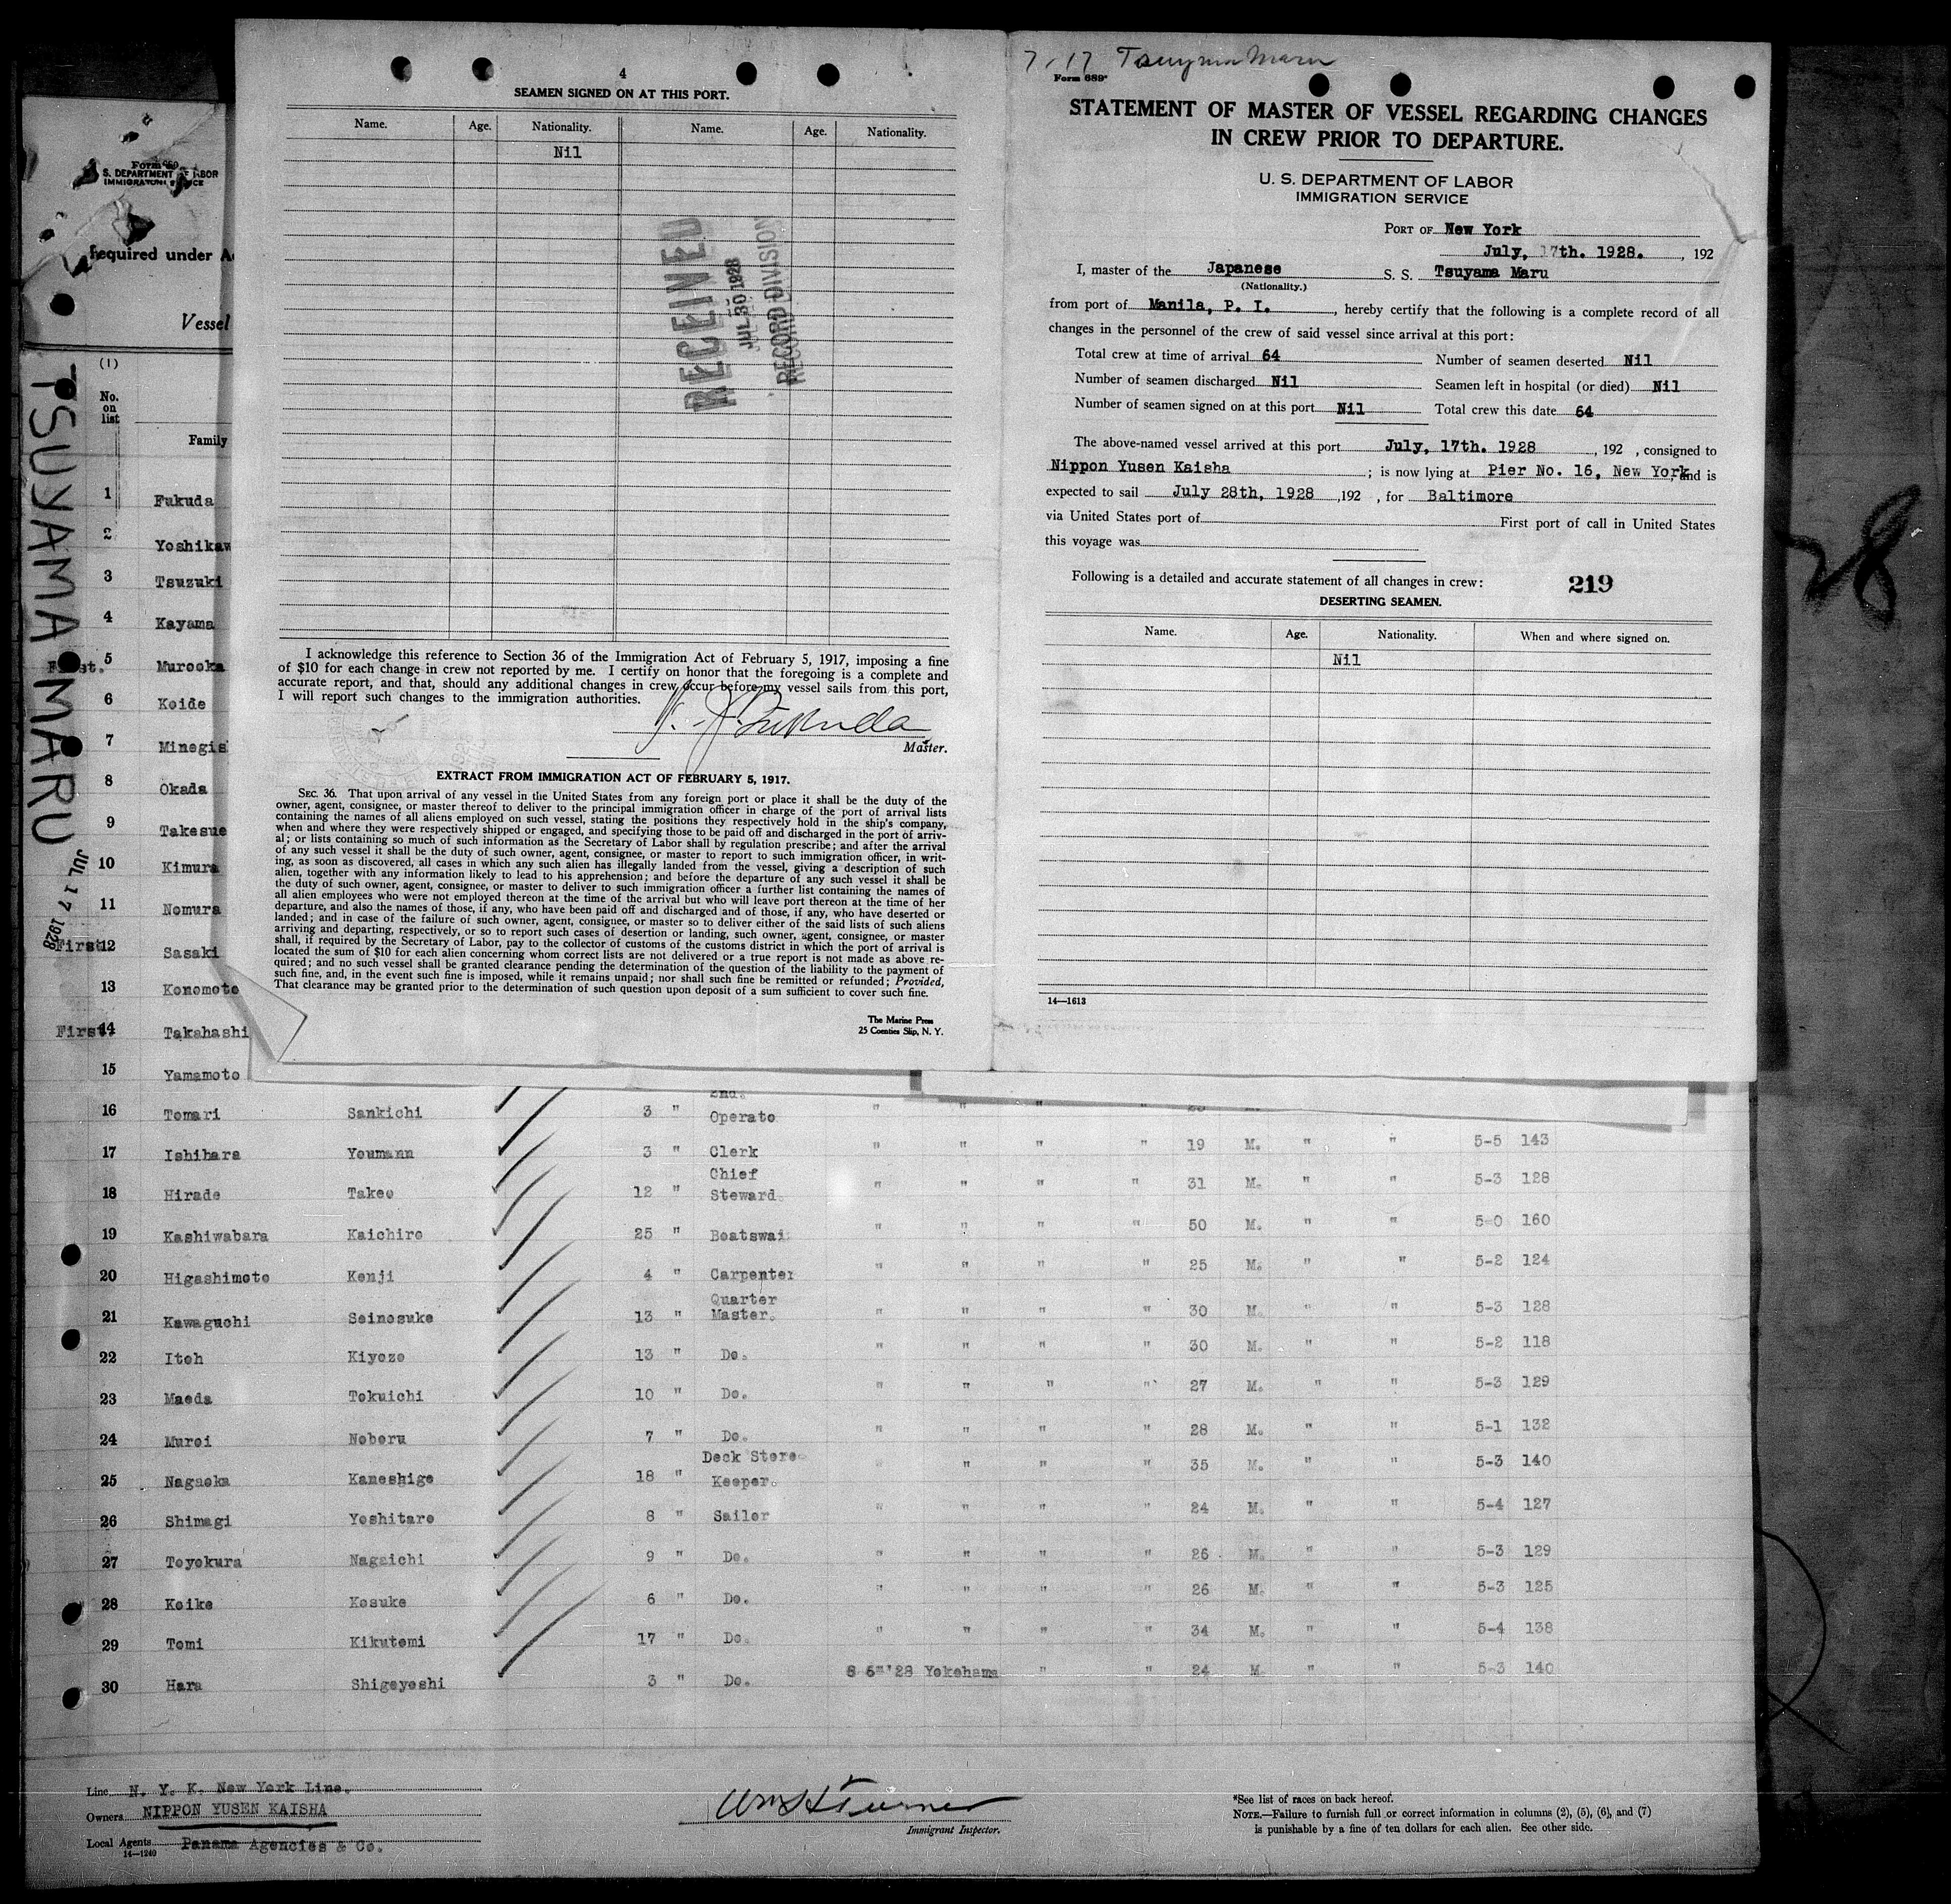 4
SEAMEN SIGNED ON AT THIS PORT.
Name. Age. Nationality. Name. Age. Nationality.
Nil
RECEIVED
JUL 30 1928
RECORD DIVISION
I acknowledge this reference to Section 36 of the Immigration Act of February 5, 1917, imposing a fine
of $10 for each change in crew not reported by me. I certify on honor that the foregoing is a complete and
accurate report, and that, should any additional changes in crew occur before my vessel sails from this port,
I will report such changes to the immigration authorities.
Fukuda
Master.
EXTRACT FROM IMMIGRATION ACT OF FEBRUARY 5, 1917.
SEC. 36. That upon arrival of any vessel in the United States from any foreign port or place it shall be the duty of the
owner, agent, consignee, or master thereof to deliver to the principal immigration officer in charge of the port of arrival lists
containing the names of all aliens employed on such vessel, stating the positions they respectively hold in the ship's company,
when and where they were respectively shipped or engaged, and specifying those to be paid off and discharged in the port of arriv-
al; or lists containing so much of such information as the Secretary of Labor shall by regulation prescribe; and after the arrival
of any such vessel it shall be the duty of such owner, agent, consignee, or master to report to such immigration officer, in writ-
ing, as soon as discovered, all cases in which any such alien has illegally landed from the vessel, giving a description of such
alien, together with any information likely to lead to his apprehension; and before the departure of any such vessel it shall be
the duty of such owner, agent, consignee, or master to deliver to such immigration officer a further list containing the names of
all alien employees who were not employed thereon at the time of the arrival but who will leave port thereon at the time of her
departure, and also the names of those, if any, who have been paid off and discharged and of those, if any, who have deserted or
landed; and in case of the failure of such owner, agent, consignee, or master so to deliver either of the said lists of such aliens
arriving and departing, respectively, or so to report such cases of desertion or landing, such owner, agent, consignee, or master
shall, if required by the Secretary of Labor, pay to the collector of customs of the customs district in which the port of arrival is
located the sum of $10 for each alien concerning whom correct lists are not delivered or a true report is not made as above re-
quired; and no such vessel shall be granted clearance pending the determination of the question of the liability to the payment of
such fine, and, in the event such fine is imposed, while it remains unpaid; nor shall such fine be remitted or refunded; Provided,
That clearance may be granted prior to the determination of such question upon deposit of a sum sufficient to cover such fine.
The Marine Press
25 Coenties Slip, N. Y.
7/17 Tsuyama Maru
Form 689
STATEMENT OF MASTER OF VESSEL REGARDING CHANGES
IN CREW PRIOR TO DEPARTURE.
U. S. DEPARTMENT OF LABOR
IMMIGRATION SERVICE
PORT OF New York
July, 17th. 1928. , 192
I, master of the Japanese S. S. Tsuyama Maru
(Nationality.)
from port of Manila, P. I. , hereby certify that the following is a complete record of all
changes in the personnel of the crew of said vessel since arrival at this port:
Total crew at time of arrival 64 Number of seamen deserted Nil
Number of seamen discharged Nil Seamen left in hospital (or died) Nil
Number of seamen signed on at this port Nil Total crew this date 64
The above-named vessel arrived at this port July, 17th. 1928 , 192 , consigned to
Nippon Yusen Kaisha ; is now lying at Pier No. 16, New York, and is
expected to sail July 28th, 1928 ,192 , for Baltimore
via United States port of First port of call in United States
this voyage was
Following is a detailed and accurate statement of all changes in crew: 219
DESERTING SEAMEN.
Name. Age. Nationality. When and where signed on.
Nil
14—1613
28
Form 689
S. DEPARTMENT OF LABOR
IMMIGRATION SERVICE
Required under
Vessel
TSUYAMA MARU
JUL 17 1928
(1)
No. on list
Family
1 Fukuda
2 Yoshikaw
3 Tsuzuki
4 Kayama
5 Murooka
6 Koide
7 Minegis
8 Okada
9 Takesue
10 Kimura
11 Nomura
First 12 Sasaki
13 Konomoto
First 14 Takahashi
15 Yamamoto
16 Tomari Sankichi 3 " 2nd. Operato " " " "
17 Ishihara Youmann 3 " Clerk " " " " 19 M. " " 5-5 143
18 Hirade Takeo 12 " Chief Steward. " " " " 31 M. " " 5-3 128
19 Kashiwabara Kaichiro 25 " Boatswai " " " " 50 M. " " 5-0 160
20 Higashimoto Kenji 4 " Carpenter " " " " 25 M. " " 5-2 124
21 Kawaguchi Seinosuke 13 " Quarter Master. " " " " 30 M. " " 5-3 128
22 Itoh Kiyozo 13 " Do. " " " " 30 M. " " 5-2 118
23 Maeda Tokuichi 10 " Do. " " " " 27 M. " " 5-3 129
24 Muroi Noboru 7 " Do. " " " " 28 M. " " 5-1 132
25 Nagaoka Kaneshige 18 " Deck Store Keeper. " " " " 35 M. " " 5-3 140
26 Shimagi Yoshitaro 8 " Sailor " " " " 24 M. " " 5-4 127
27 Toyokura Nagaichi 9 " Do. " " " " 26 M. " " 5-3 129
28 Koike Kosuke 6 " Do. " " " " 26 M. " " 5-3 125
29 Tomi Kikutomi 17 " Do. " " " " 34 M. " " 5-4 138
30 Hara Shigeyoshi 3 " Do. '28 Yokohama " " 24 M " " 5-3 140
Line N. Y. K. New York Line.
Owners NIPPON YUSEN KAISHA
Local Agents Panama Agencies & Co.
14—1240
Wm H Turner
Immigrant Inspector.
*See list of races on back hereof.
NOTE.—Failure to furnish full or correct information in columns (2), (5), (6), and (7)
is punishable by a fine of ten dollars for each alien. See other side.